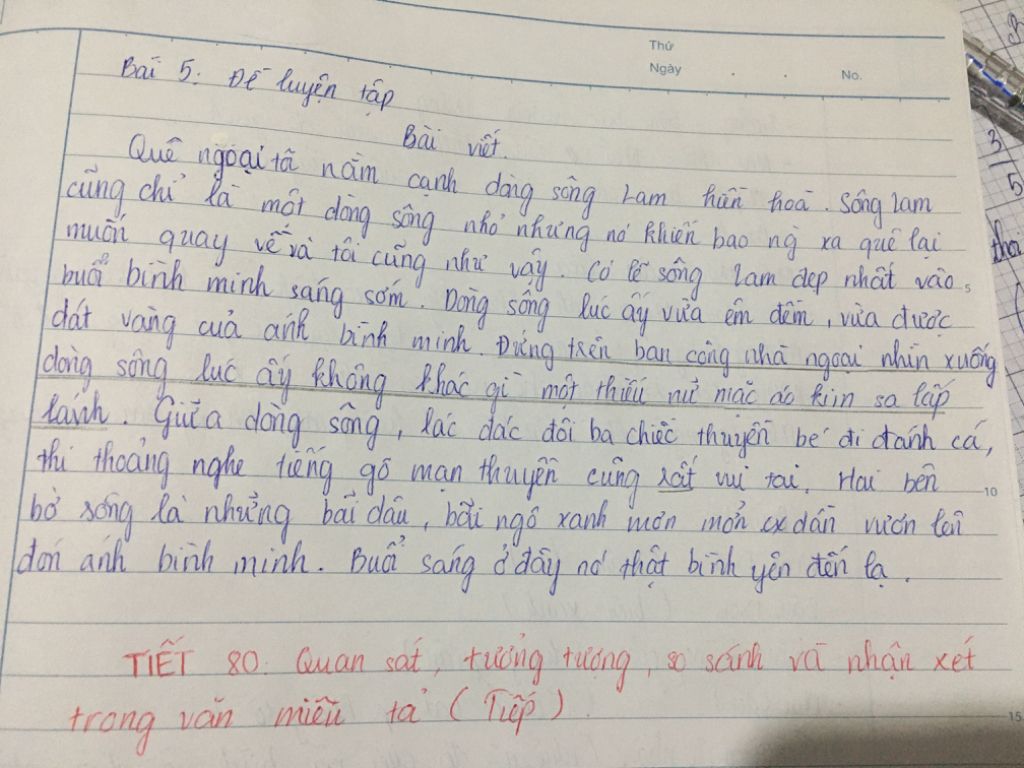 Thứ
Ngày . . No.
Bài 5: Đề luyện tập
Bài viết.
Quê ngoại tà nằm cạnh dòng sông Lam hiền hoà. Sông Lam
cũng chỉ là một dòng sông nhỏ nhưng nó khiến bao ng xa quê lại
muốn quay về và tôi cũng như vậy. Có lẽ sông Lam đẹp nhất vào
buổi bình minh sáng sớm. Dòng sông lúc ấy vừa êm đềm, vừa được
dát vàng của ánh bình minh. Đứng trên ban công nhà ngoại nhìn xuống
dòng sông lúc ấy không khác gì một thiếu nữ mặc áo kim sa lấp
lánh. Giữa dòng sông, lác đác đôi ba chiếc thuyền bé đi đánh cá,
thi thoảng nghe tiếng gõ mạn thuyền cũng rất vui tai. Hai bên
10
bờ sông là những bãi dâu, bãi ngô xanh mơn mởn cx dần vươn lên
đón ánh bình minh. Buổi sáng ở đây nó thật bình yên đến lạ.
TIẾT 80. Quan sát, tưởng tượng, so sánh và nhận xét
trong văn miêu tả (Tiếp).
15
3
5